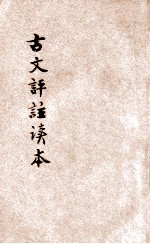 古文評註读本